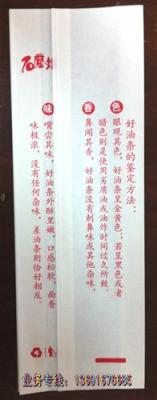 好油条的鉴定方法：
色
眼观其色，好油条呈金黄色；若呈黑色或者
暗色则是使用劣质油或油炸时间过久所致。
香
鼻闻其香，好油条没有刺鼻味或其他杂味。
味
嘴尝其味，好油条外酥里嫩，口感松软，面香
味极浓，没有任何杂味，差油条则恰好相反。
石磨
业务专线：13691676685